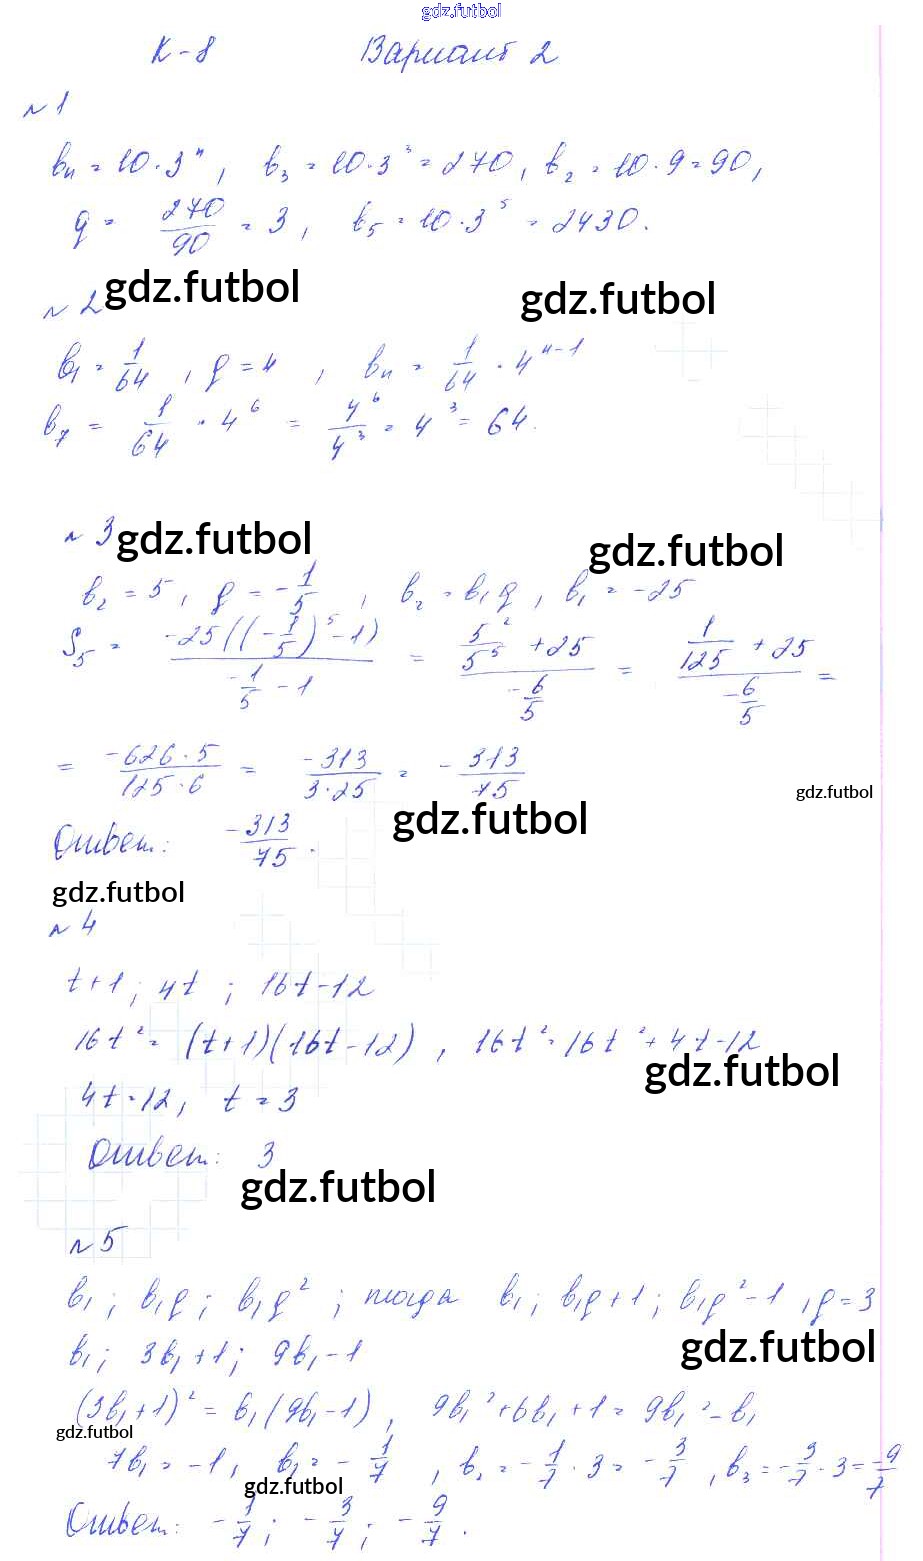 gdz.futbol
К-8 Вариант 2
№ 1
bₙ = 10·3ⁿ, b₃ = 10·3³ = 270, b₂ = 10·9 = 90,
q = 270/90 = 3, b₅ = 10·3⁵ = 2430.
gdz.futbol
gdz.futbol
№ 2
b₁ = 1/64, q = 4, bₙ = 1/64 · 4ⁿ⁻¹
b₇ = 1/64 · 4⁶ = 4⁶/4³ = 4³ = 64.
№ 3
gdz.futbol
gdz.futbol
b₂ = 5, q = -1/5, b₂ = b₁q, b₁ = -25
S₅ = -25((-1/5)⁵ - 1) / (-1/5 - 1) = (5²/5⁵ + 25) / (-6/5) = (1/125 + 25) / (-6/5) =
= -626·5 / 125·6 = -313 / 3·25 = - 313/75
gdz.futbol
gdz.futbol
Ответ: -313/75.
gdz.futbol
№ 4
t+1; 4t; 16t-12
16t² = (t+1)(16t-12), 16t² = 16t² + 4t - 12
gdz.futbol
4t = 12, t = 3
Ответ: 3
gdz.futbol
№ 5
b₁; b₁q; b₁q²; тогда b₁; b₁q+1; b₁q²-1, q=3
gdz.futbol
b₁; 3b₁+1; 9b₁-1
(3b₁+1)² = b₁(9b₁-1), 9b₁²+6b₁+1 = 9b₁²-b₁
gdz.futbol
7b₁ = -1, b₁ = -1/7, b₂ = -1/7 · 3 = -3/7, b₃ = -3/7 · 3 = -9/7
gdz.futbol
Ответ: -1/7; -3/7; -9/7.